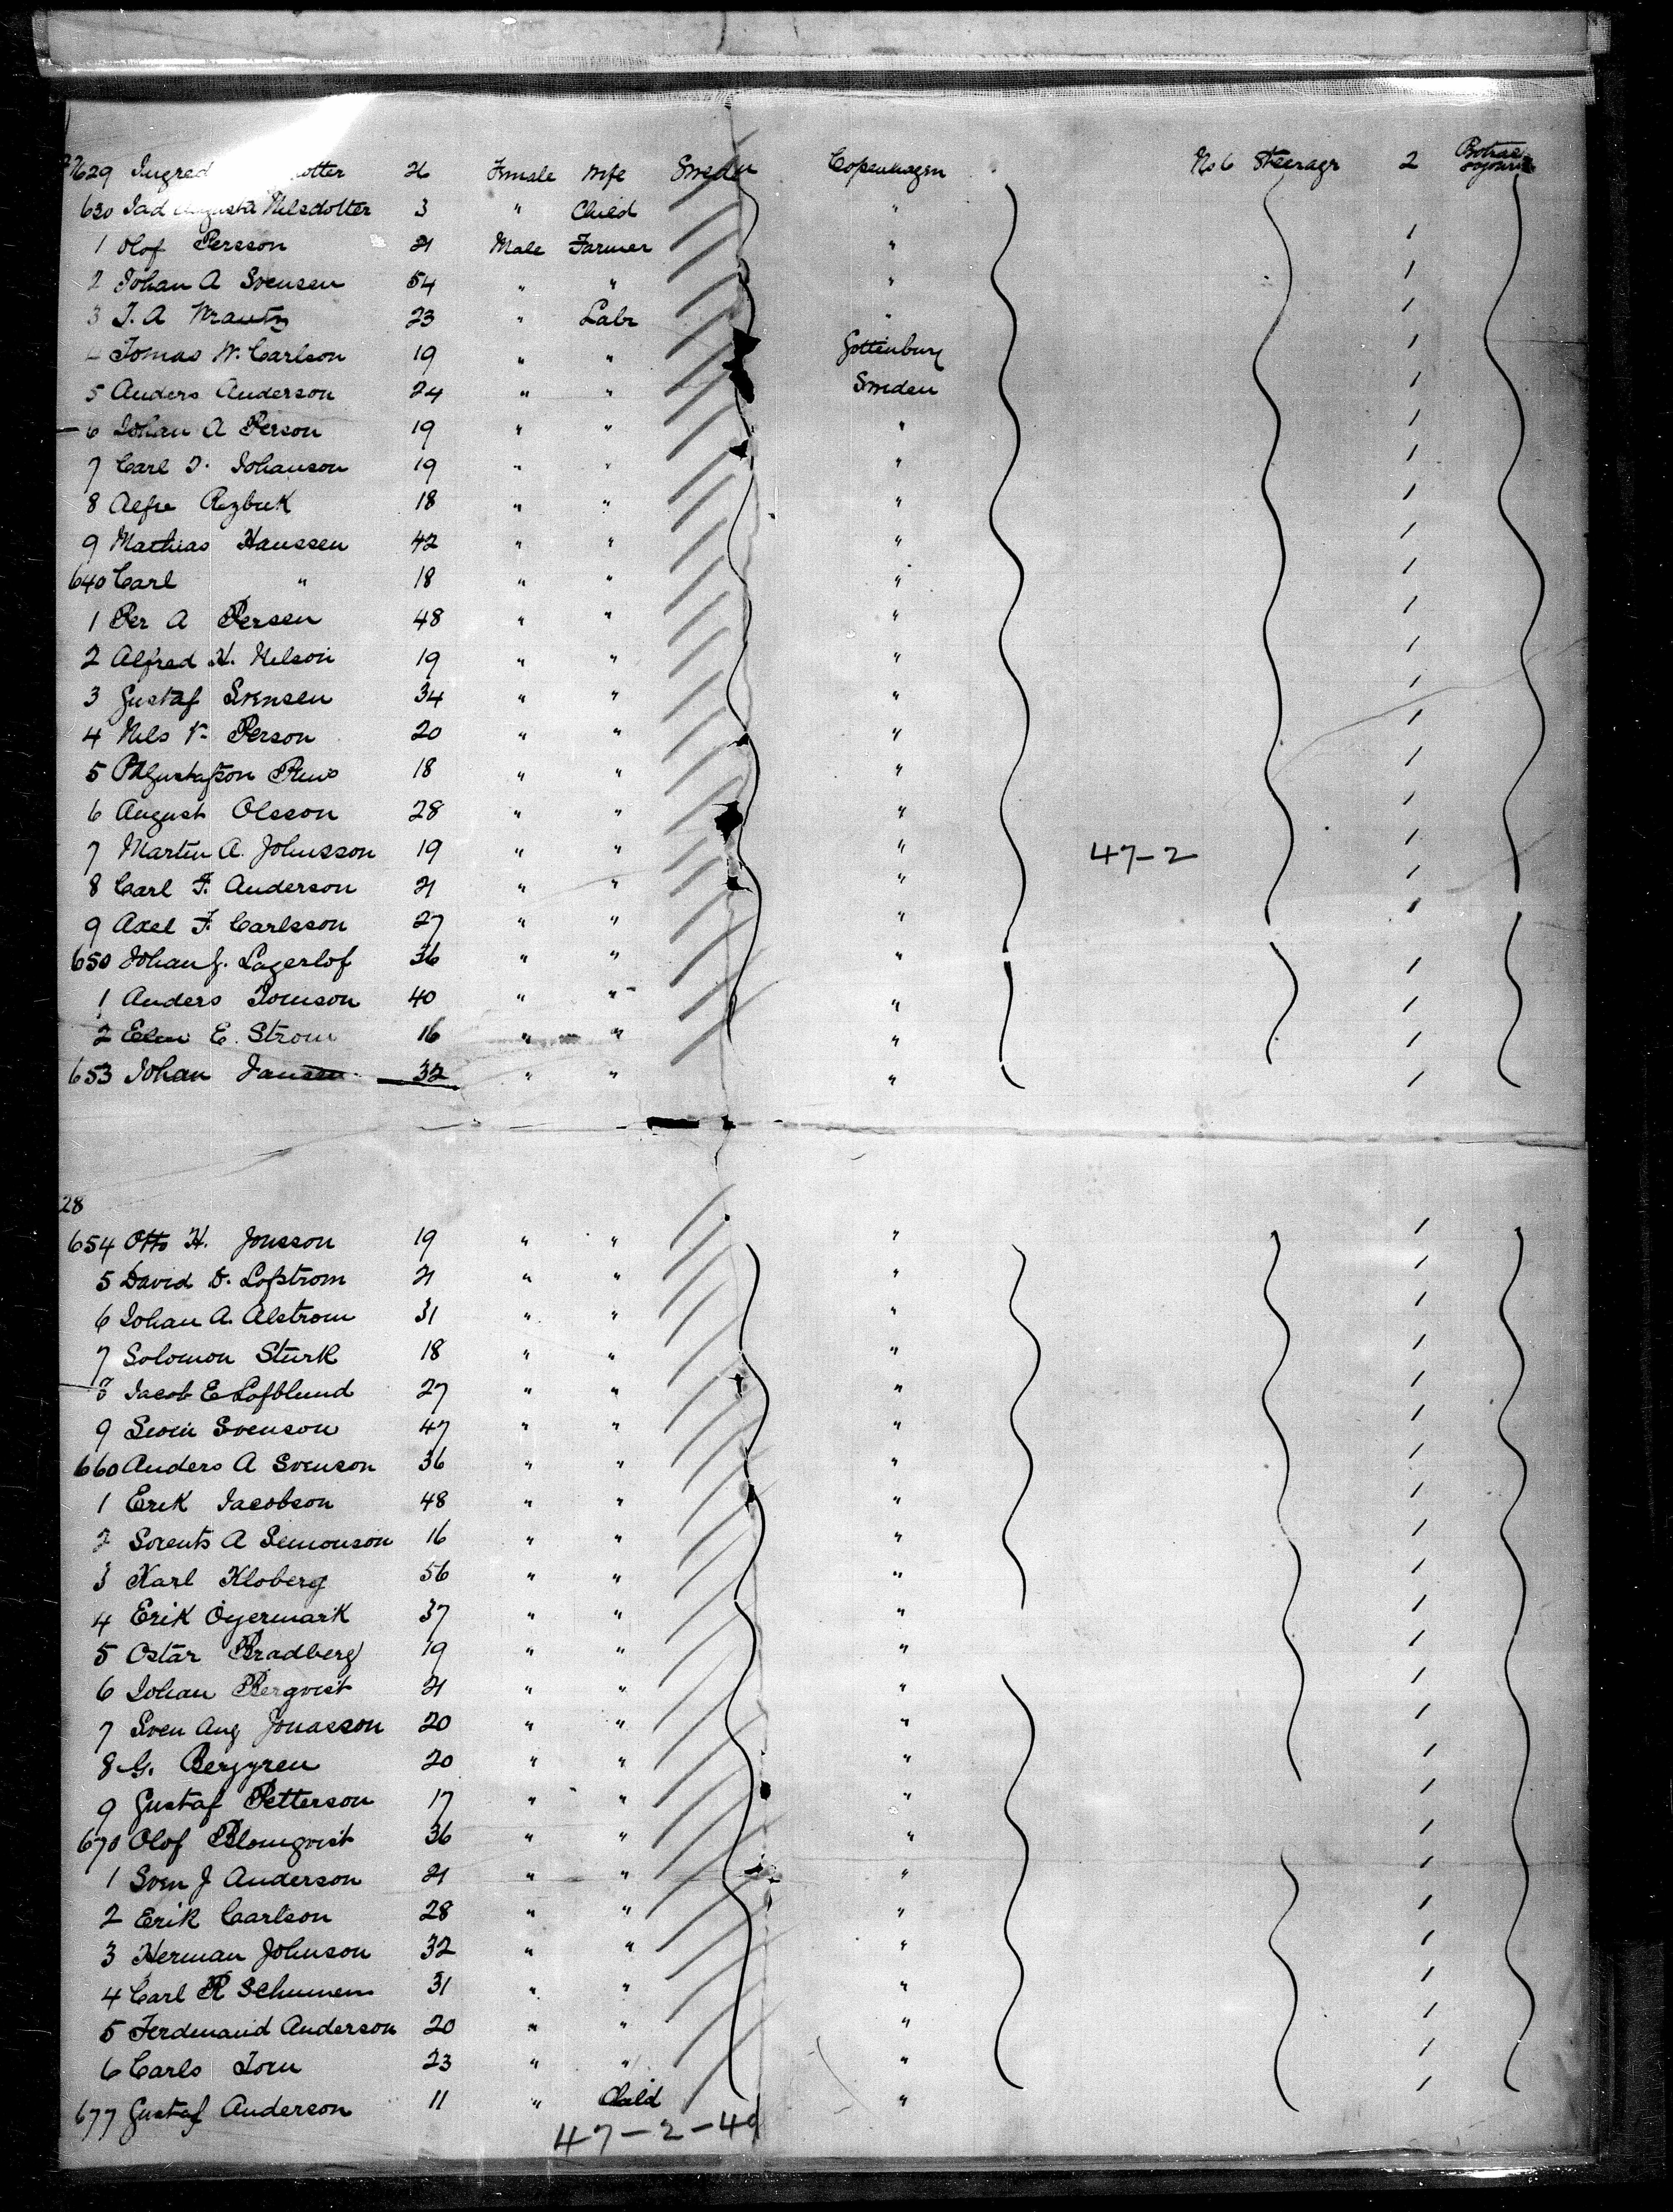 629 Ingred otter 26 Female Wife Sweden Copenhagen No 6 Steeragr 2
630 Nelsdotter 3 " Child "
1 Olof Persson 21 Male Farmer " 1
2 Johan A Svensen 54 " " " 1
3 J. A 23 " Labr " 1
4 Tomas W. Carlson 19 " " Gottenburg 1
5 Anders Anderson 24 " " Sweden 1
6 Johan A Person 19 " " " 1
7 Carl J. Johanson 19 " " " 1
8 18 " " " 1
9 Mathias Hanssen 42 " " " 1
640 Carl " 18 " " " 1
1 Per A Persen 48 " " " 1
2 Alfred H. Nelson 19 " " " 1
3 Gustaf Svensen 34 " " " 1
4 Nels V. Person 20 " " " 1
5 Gustafson 18 " " " 1
6 August Olsson 28 " " " 1
7 Martin A. Johnsson 19 " " " 47-2 1
8 Carl F. Anderson 21 " " " 1
9 Axel F. Carlsson 27 " " " 1
650 Johan J. Lagerlof 36 " " " 1
1 Anders Tomson 40 " " " 1
2 E. Strom 16 " " " 1
653 Johan Jansen 32 " " " 1
28
654 Otto H. Jonsson 19 " " " 1
5 David D. Lofstrom 21 " " " 1
6 Johan A. Alstrom 31 " " " 1
7 Solomon Sturk 18 " " " 1
8 Jacob E Lofblund 27 " " " 1
9 Svenson 47 " " " 1
660 Anders A Svenson 36 " " " 1
1 Erik Jacobson 48 " " " 1
2 Sorents A Semonson 16 " " " 1
3 Karl Kloberg 56 " " " 1
4 Erik Oyermark 37 " " " 1
5 Ostar Bradberg 19 " " " 1
6 Johan Bergvist 21 " " " 1
7 Sven Aug Jonasson 20 " " " 1
8 G. Berggren 20 " " " 1
9 Gustaf Petterson 17 " " " 1
670 Olof Blomqvist 36 " " " 1
1 Sven J Anderson 21 " " " 1
2 Erik Carlson 28 " " " 1
3 Herman Johnson 32 " " " 1
4 Carl R 31 " " " 1
5 Ferdinand Anderson 20 " " " 1
6 Carls 23 " " " 1
677 Gustaf Anderson 11 " Child " 1
47-2-49